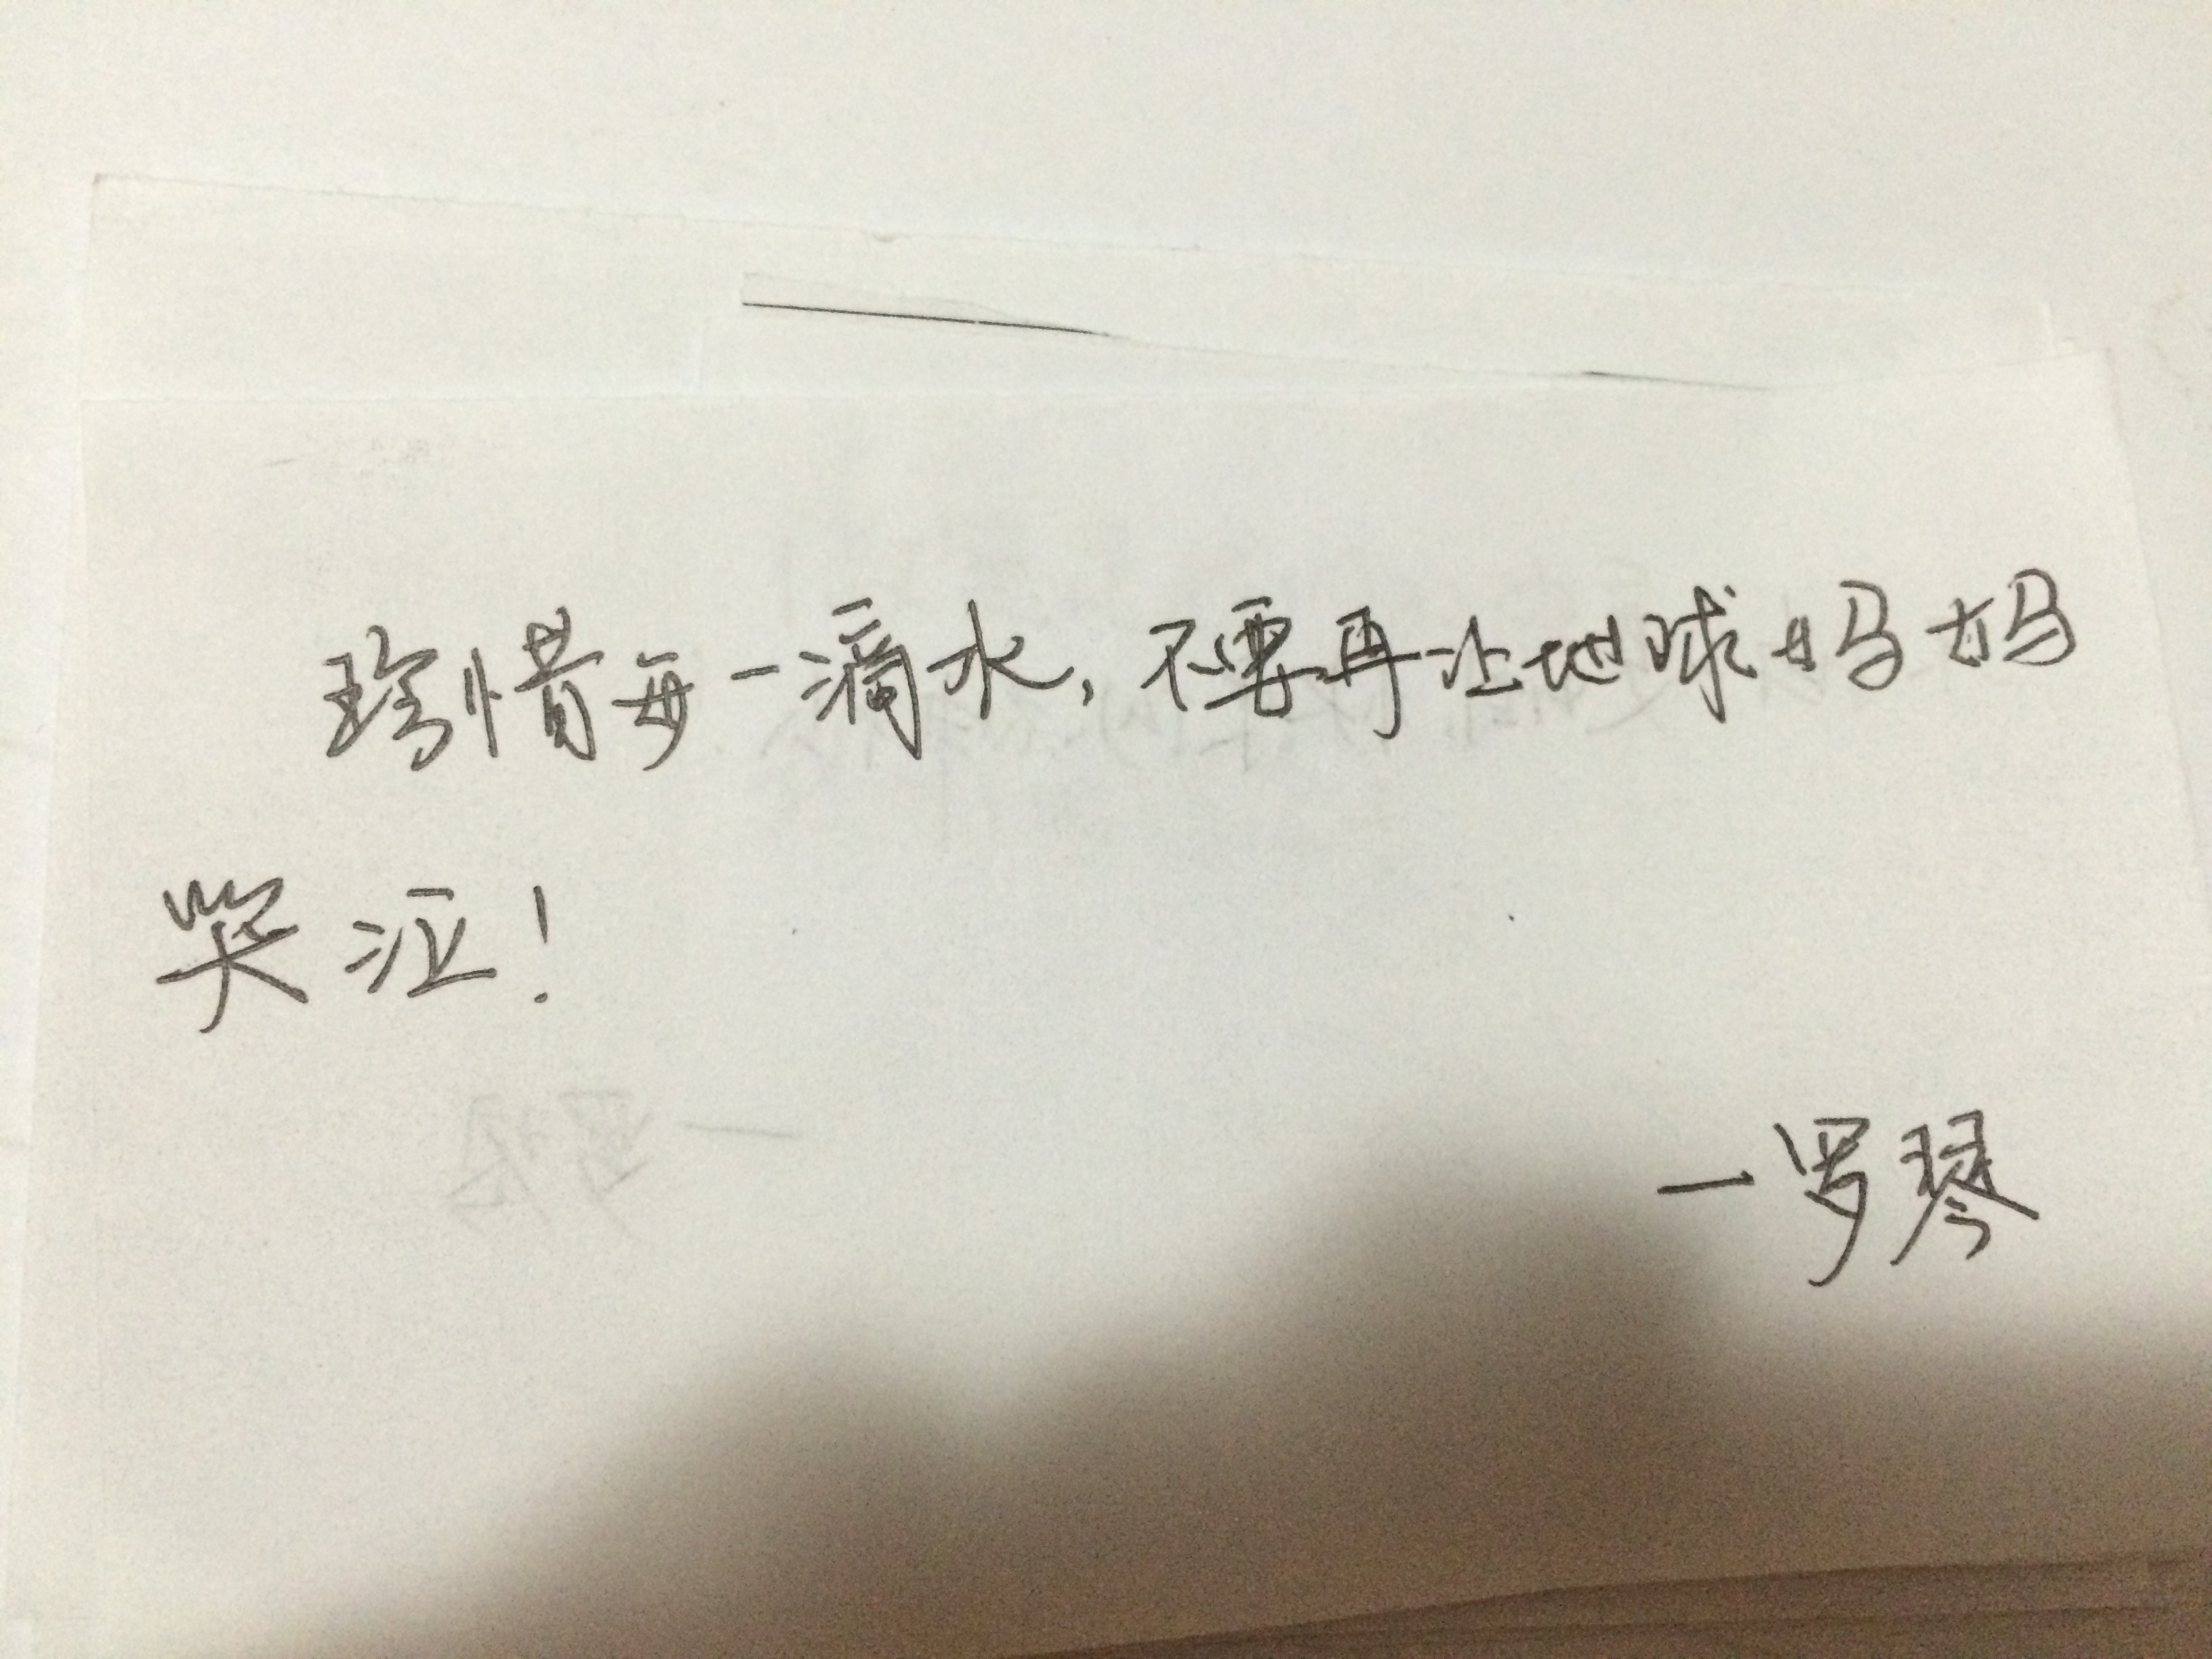 珍惜每一滴水，不要再让地球妈妈
哭泣！
一罗琴